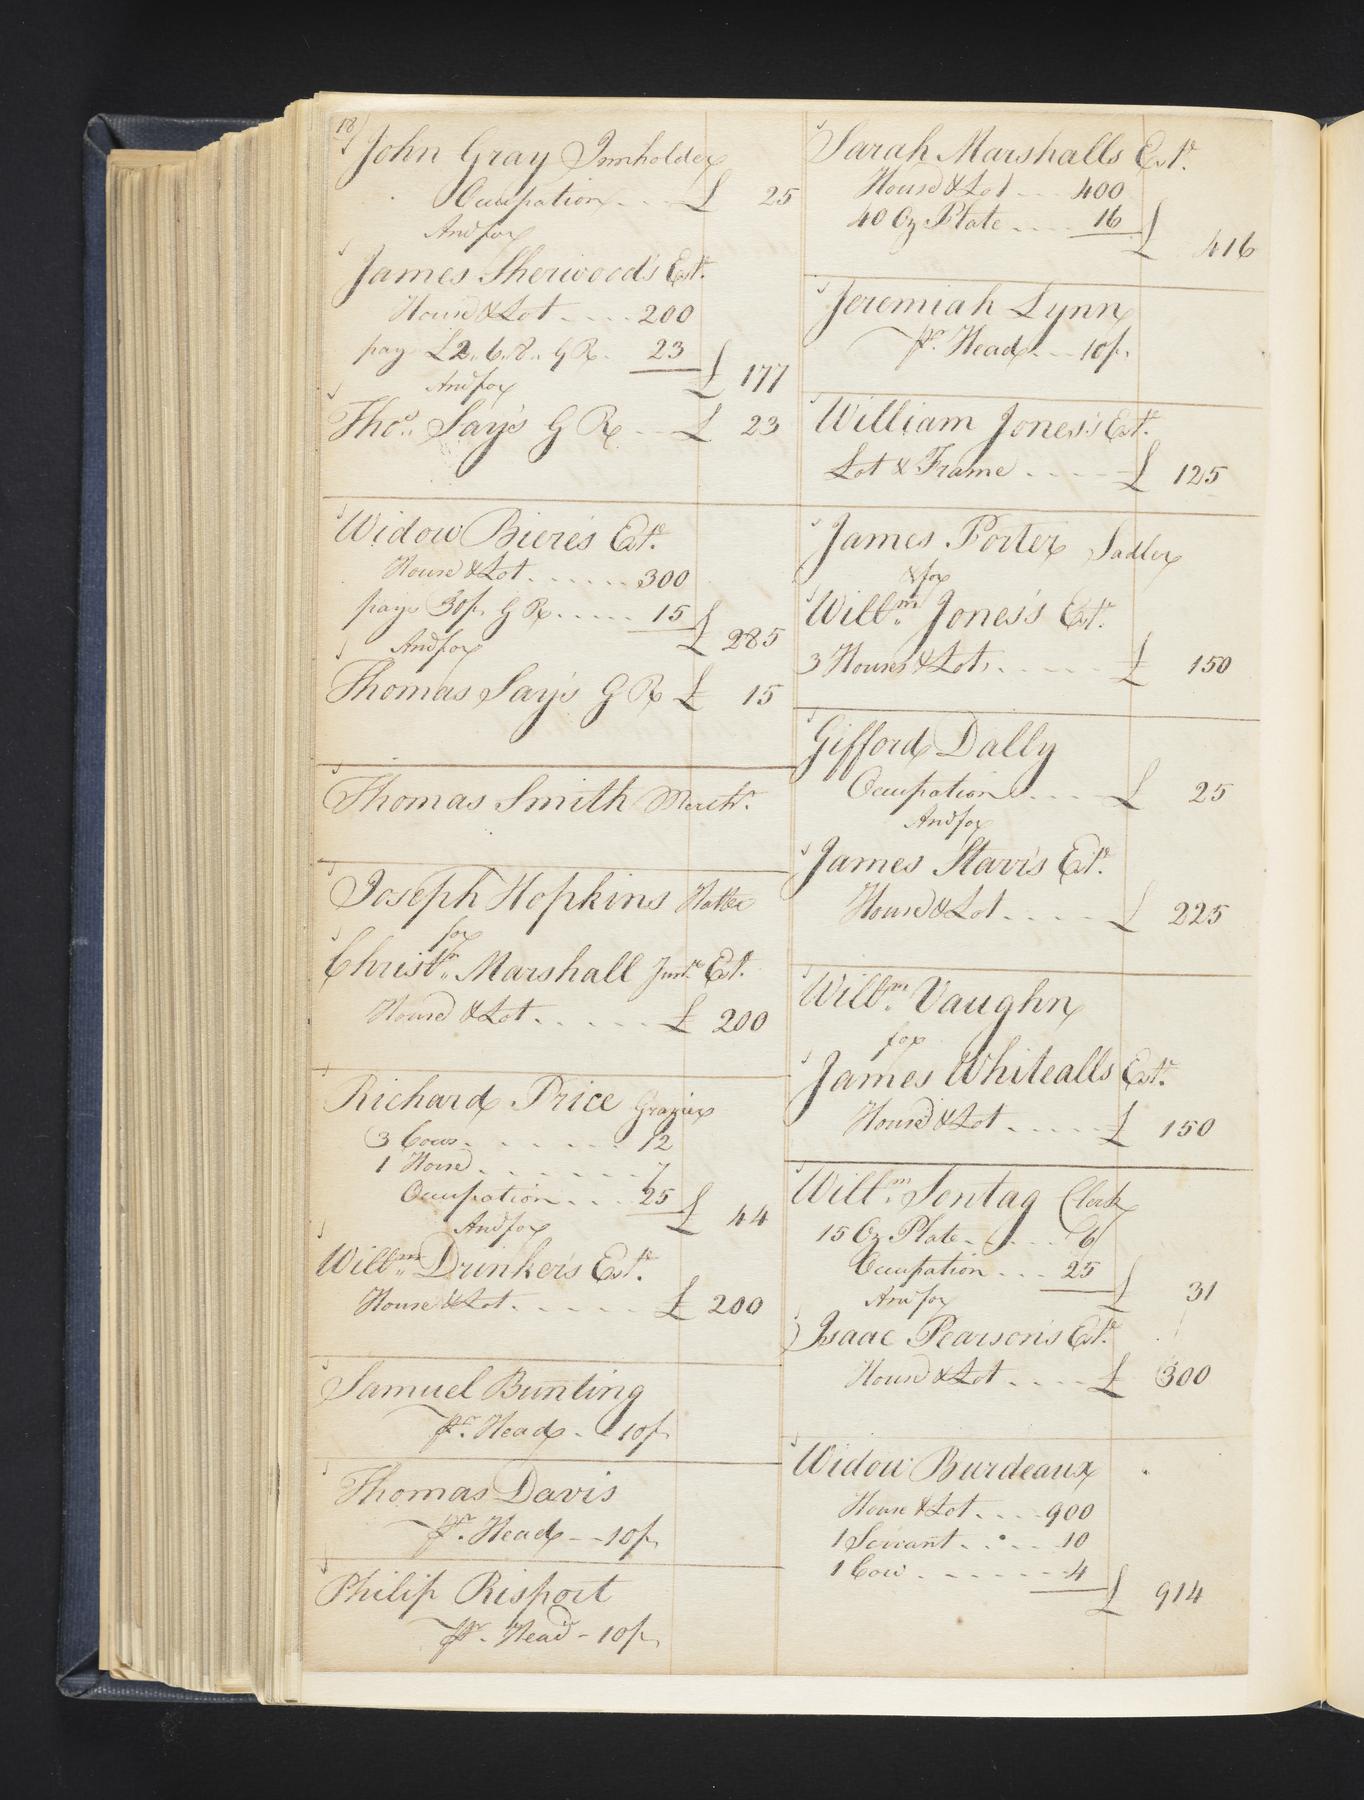 18
John Gray Innholder
Occupation . . . £ 25
And for
James Sherwood's Este.
House & Lot . . . . 200
pay £2..6..8.. G R . 23 £ 177
And for
Thos. Say's G R . . . £ 23
Widow Biere's Este.
House & Lot . . . . . . 300
pays 30/ G R . . . . . 15 £ 285
And for
Thomas Say's G R £ 15
Thomas Smith Mercht.
Joseph Hopkins Hatter
for
Christr. Marshall Junr. Est.
House & Lot . . . . . . £ 200
Richard Price Grazier
3 Cows . . . . . . . 12
1 Horse . . . . . . . 7
Occupation . . . 25 £ 44
And for
Willm. Drinker's Este.
House & Lot . . . . . . £ 200
Samuel Bunting
pr. Head - . 10/
Thomas Davis
pr. Head - - 10/
Philip Risport
pr. Head - 10/
Sarah Marshalls Este.
House & Lot . . . 400
40 Oz Plate . . . . 16 £ 416
Jeremiah Lynn
pr. Head . . . 10/
William Jones's Este.
Lot & Frame . . . . . £ 125
James Porter Sadler
& for
Willm. Jones's Este.
3 Houses & Lots . . . . . £ 150
Gifford Dally
Occupation . . . . £ 25
And for
James Starr's Este.
House & Lot . . . . . £ 225
Willm. Vaughn
for
James Whitealls Este.
House & Lot . . . . . £ 150
Willm. Sontag Clerk
15 Oz Plate . . . . . 6
Occupation . . . 25 £ 31
And for
Isaac Pearson's Este.
House & Lot . . . . £ 300
Widow Burdeaux
House & Lot . . . . 900
1 Servant . . . . 10
1 Cow . . . . . . . 4 £ 914